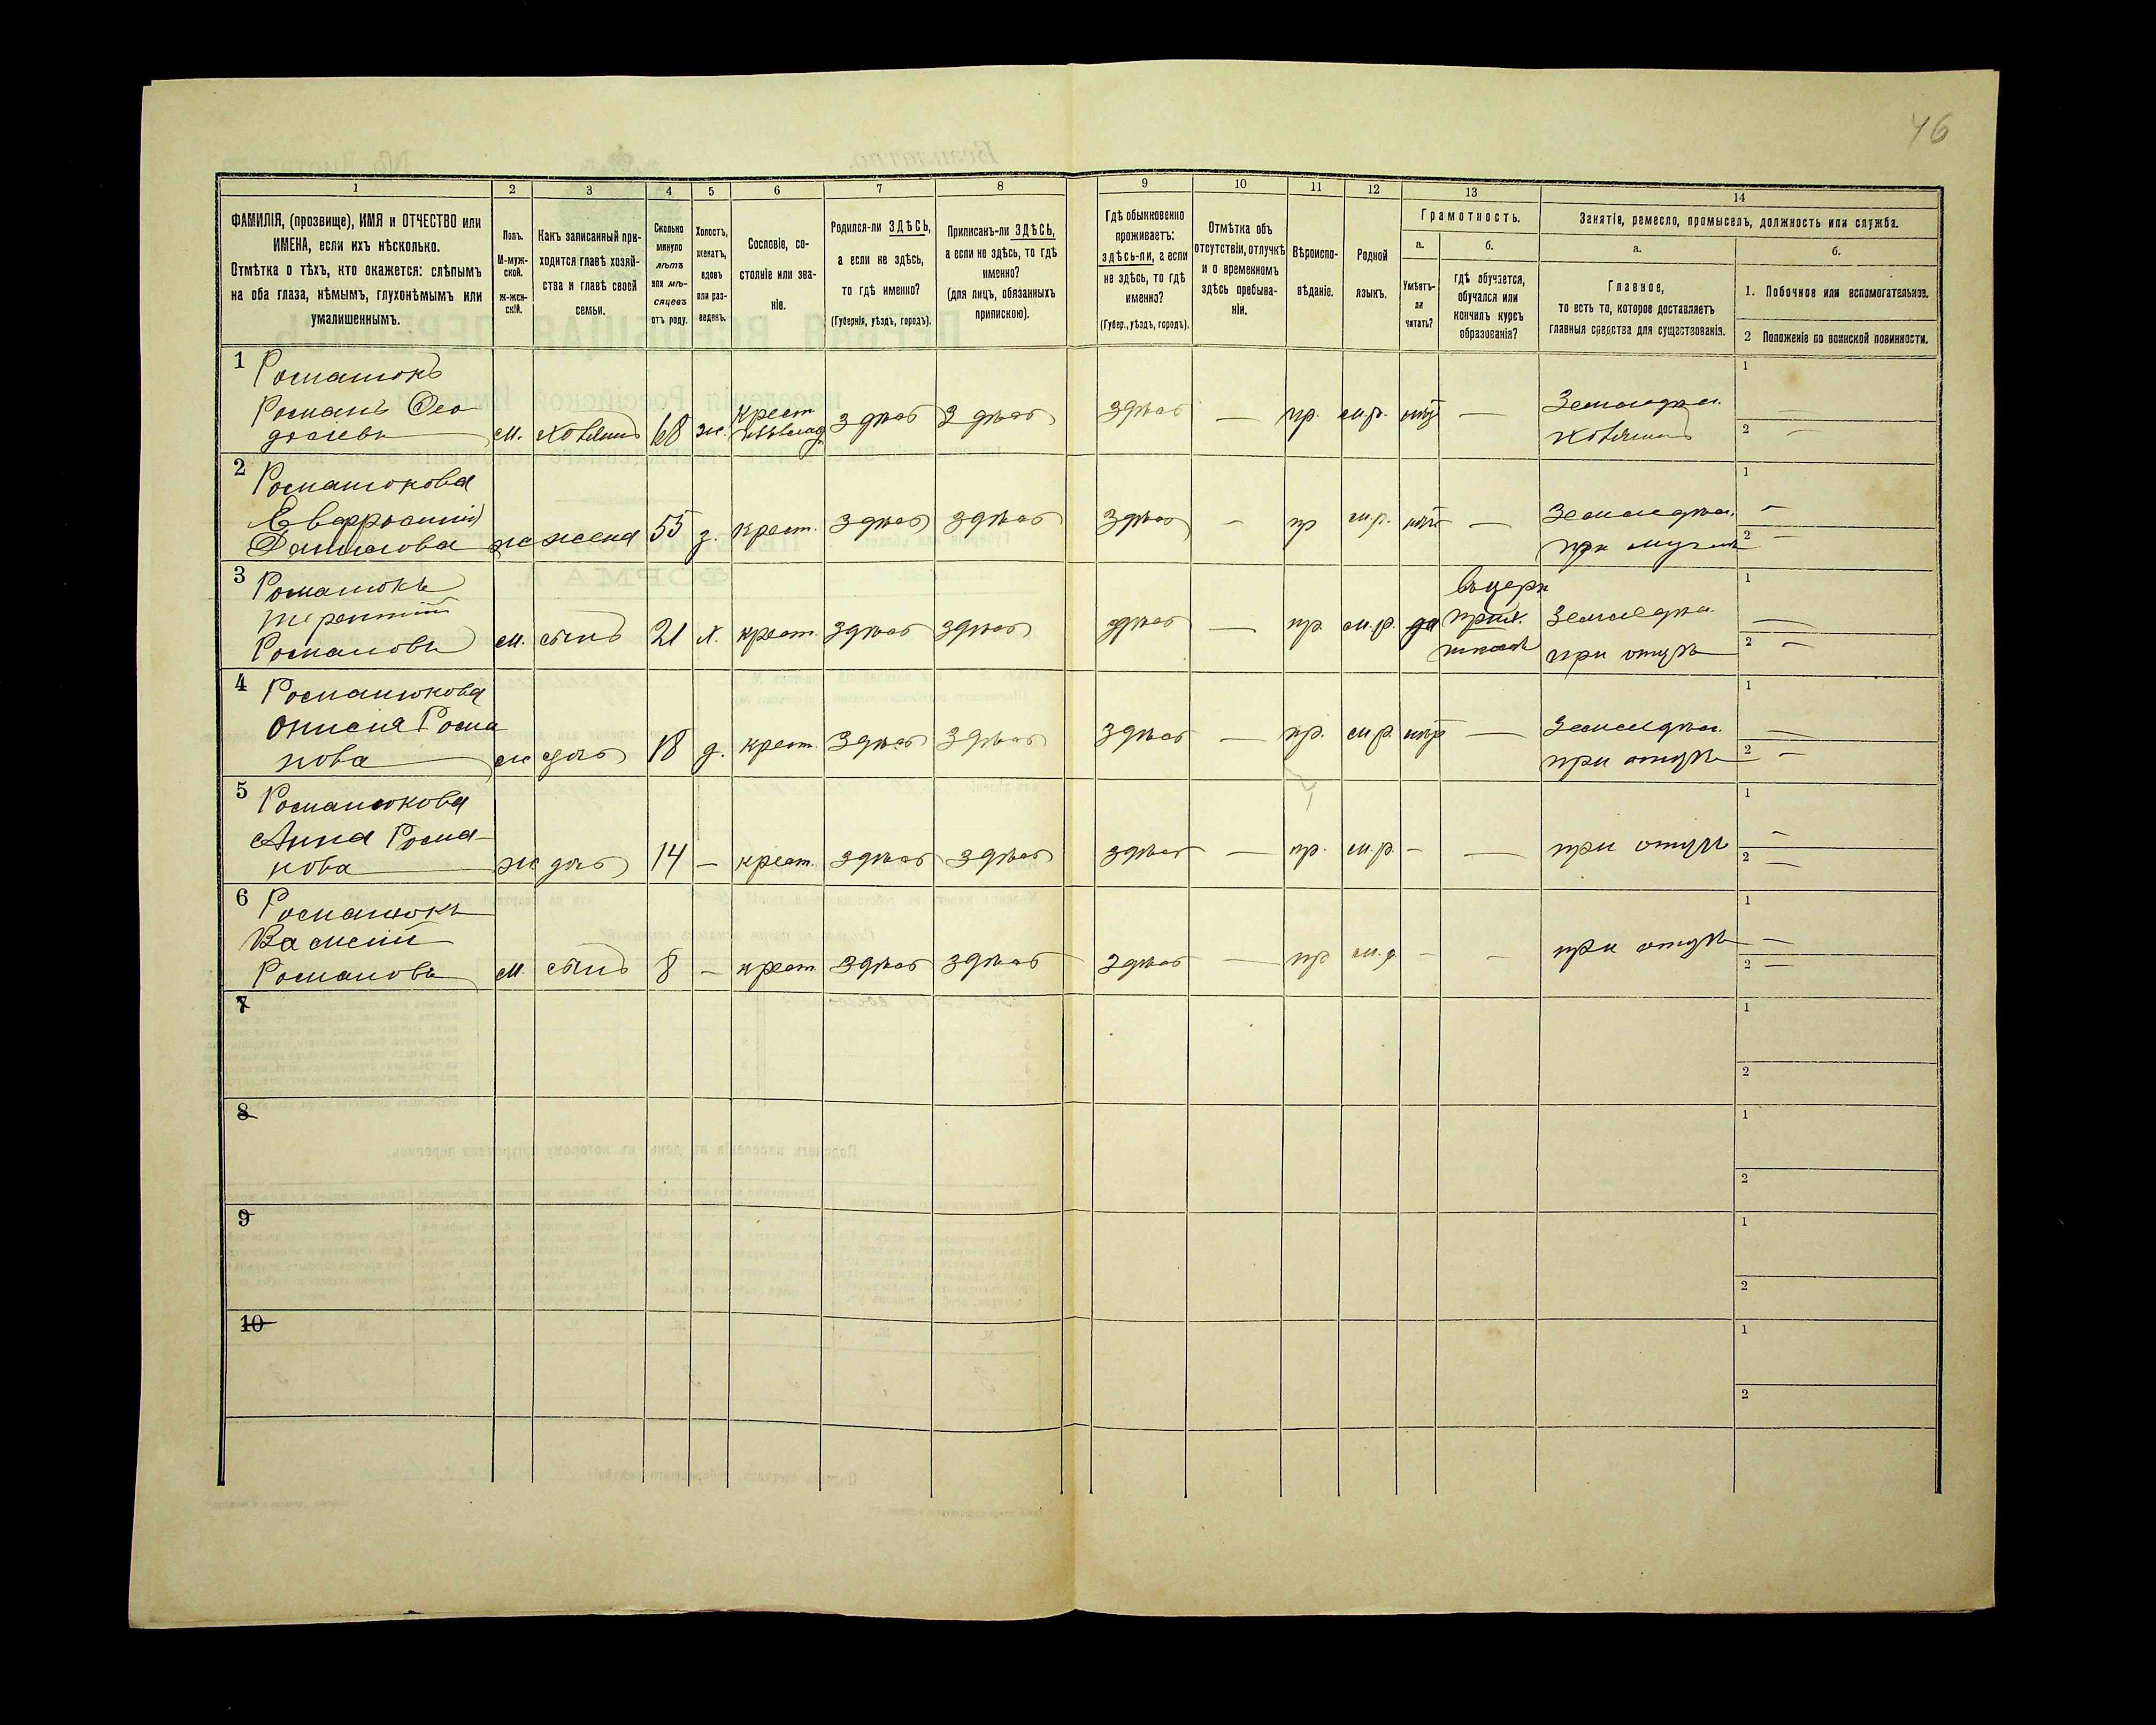 46
1
2
3
4
5
6
7
8
9
10
11
12
13
14
ФАМИЛІЯ, (прозвище), ИМЯ и ОТЧЕСТВО или
ИМЕНА, если ихъ нѣсколько.
Отмѣтка о тѣхъ, кто окажется: слѣпымъ
на оба глаза, нѣмымъ, глухонѣмымъ или
умалишеннымъ.
Полъ.
М-муж-
ской.
ж-жен-
скій.
Какъ записанный при-
ходится главѣ хозяй-
ства и главѣ своей
семьи.
Сколько
минуло
лѣтъ
или мѣ-
сяцевъ
отъ роду.
Холостъ,
женатъ,
вдовъ
или раз-
веденъ.
Сословіе, со-
стояніе или зва-
ніе.
Родился-ли ЗДѢСЬ,
а если не здѣсь,
то гдѣ именно?
(Губернія, уѣздъ, городъ).
Приписанъ-ли ЗДѢСЬ,
а если не здѣсь, то гдѣ
именно?
(для лицъ, обязанныхъ
припискою).
Гдѣ обыкновенно
проживаетъ:
здѣсь-ли, а если
не здѣсь, то гдѣ
именно?
(Губер., уѣздъ, городъ).
Отмѣтка объ
отсутствіи, отлучкѣ
и о временномъ
здѣсь пребыва-
ніи.
Вѣроиспо-
вѣданіе.
Родной
языкъ.
Грамотность.
а.
Умѣетъ-
ли
читать?
б.
Гдѣ обучается,
обучался или
кончилъ курсъ
образованія?
Занятіе, ремесло, промыселъ, должность или служба.
а.
Главное,
то есть то, которое доставляетъ
главныя средства для существованія.
б.
1. Побочное или вспомогательное.
2 Положеніе по воинской повинности.
1 Романюкъ
Романъ Ѳео
досіевъ м. хозяинъ 68 ж. крест. здѣсь здѣсь здѣсь — пр. м.р. нѣтъ — Земледѣл.
хозяинъ
1 —
2 —
2 Романюкова
Евфросинія
Данилова ж жена 55 з. крест. здѣсь здѣсь здѣсь - пр м.р. нѣтъ — Земледѣл.
при мужѣ
1 —
2 —
3 Романюкъ
Терентій
Романовъ м. сынъ 21 х. крест. здѣсь здѣсь здѣсь — пр. м.р. да въ церк
прих.
школѣ
Земледѣл.
при отцѣ
1 —
2 —
4 Романюкова
Онисія Рома
нова ж дочь 18 д. крест. здѣсь здѣсь здѣсь — пр. м.р. нѣтъ — Земледѣл.
при отцѣ
1 —
2 —
5 Романюкова
Анна Рома-
нова ж дочь 14 — крест. здѣсь здѣсь здѣсь — пр. м.р. - — при отцѣ
1 —
2 —
6 Романюкъ
Василій
Романовъ м. сынъ 8 — крест здѣсь здѣсь здѣсь — пр м.р - - при отцѣ
1 —
2 —
7
1
2
8
1
2
9
1
2
10
1
2